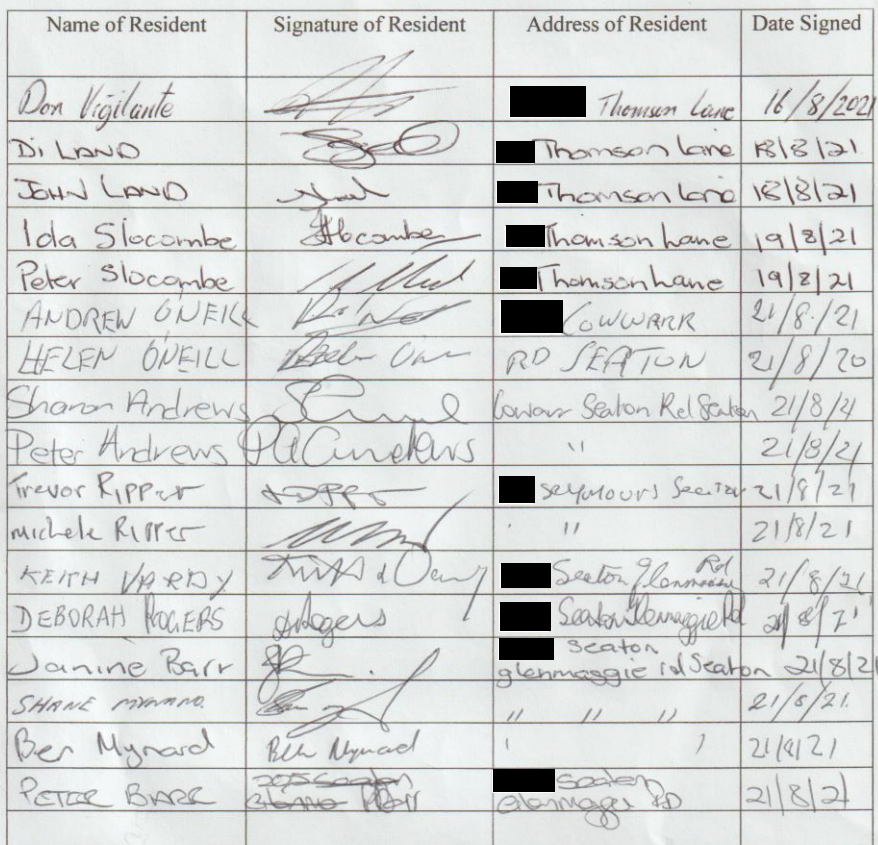 Name of Resident Signature of Resident Address of Resident Date Signed
Don Vigilante Thomson Lane 16/8/2021
Di LAND Thomson Lane 18/8/21
JOHN LAND Thomson Lane 18/8/21
Ida Slocombe Slocombe Thomson Lane 19/8/21
Peter Slocombe Thomson Lane 19/8/21
ANDREW O'NEILL COWWARR 21/8/21
HELEN O'NEILL RD SEATON 21/8/20
Sharon Andrews Cowarr Seaton Rd Seaton 21/8/21
Peter Andrews PA Andrews " 21/8/21
Trevor Ripper Seymours Seaton 21/8/21
michele Ripper " 21/8/21
KEITH VARDY Seaton Glenmaggie Rd 21/8/21
DEBORAH ROGERS DRogers Seaton Glenmaggie Rd 21/8/21
Janine Barr Seaton
glenmaggie rd Seaton 21/8/21
SHANE " " " 21/8/21
Ben Mynard Ben Mynard 21/8/21
PETER BARR Seaton
Glenmaggie RD 21/8/21